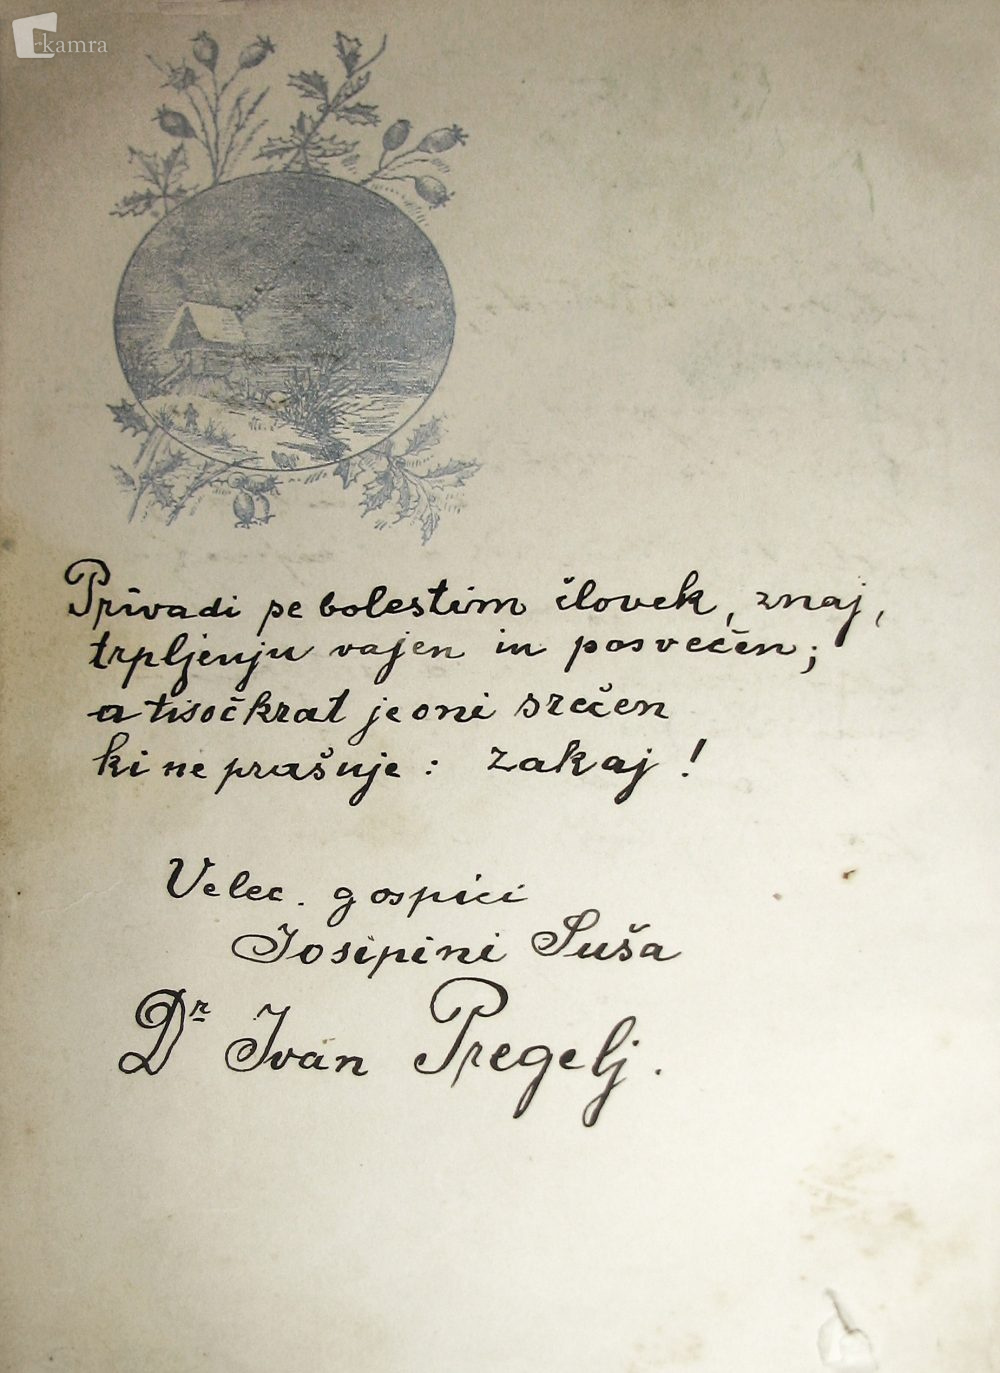 kamra
Privadi se bolestim človek, znaj,
trpljenju vajen in posvečen;
a tisočkrat je oni srečen
ki ne prašuje: zakaj!
Velec. gospici
Josipini Suša
Dr Ivan Pregelj.